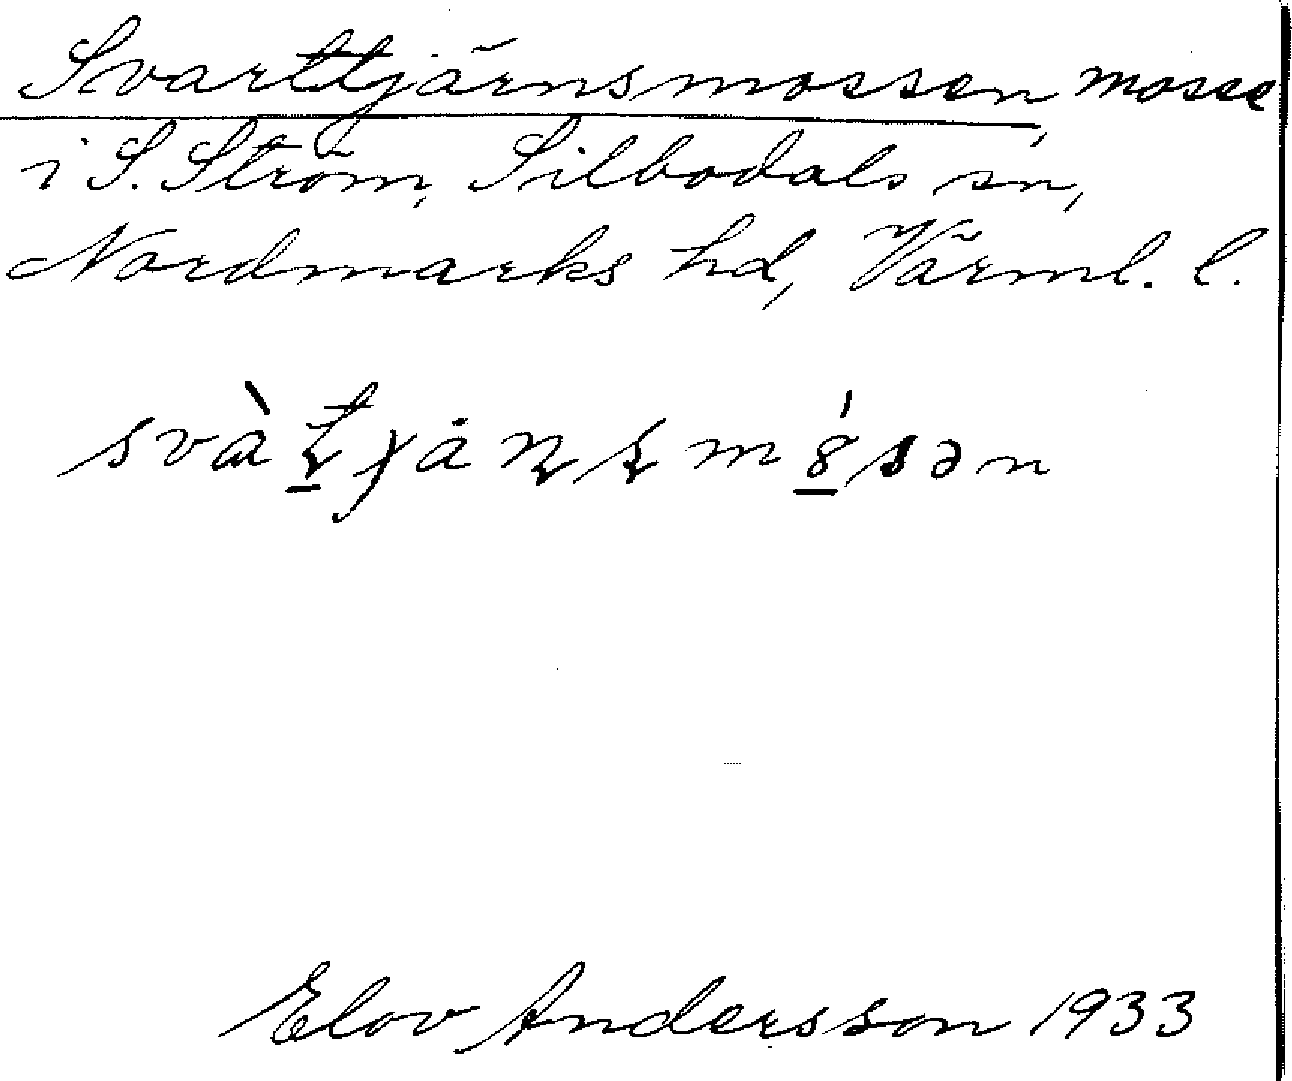 Svarttjärnsmossen, mosse
i S. Ström, Silbodals sn,
Nordmarks hd, Värml. l.
Elov Andersson 1933